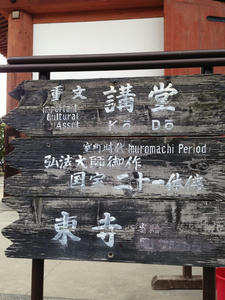 重文 講堂
Important Cultural Asset Kō Dō
室町時代 Muromachi Period
弘法大師御作
国宝 二十一体佛
東寺